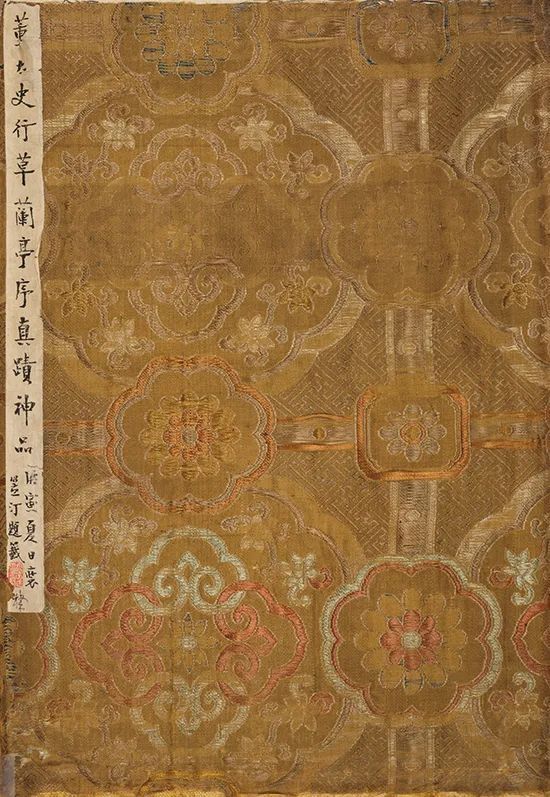 董太史行草蘭亭序真蹟神品
寅夏日
汀題籤